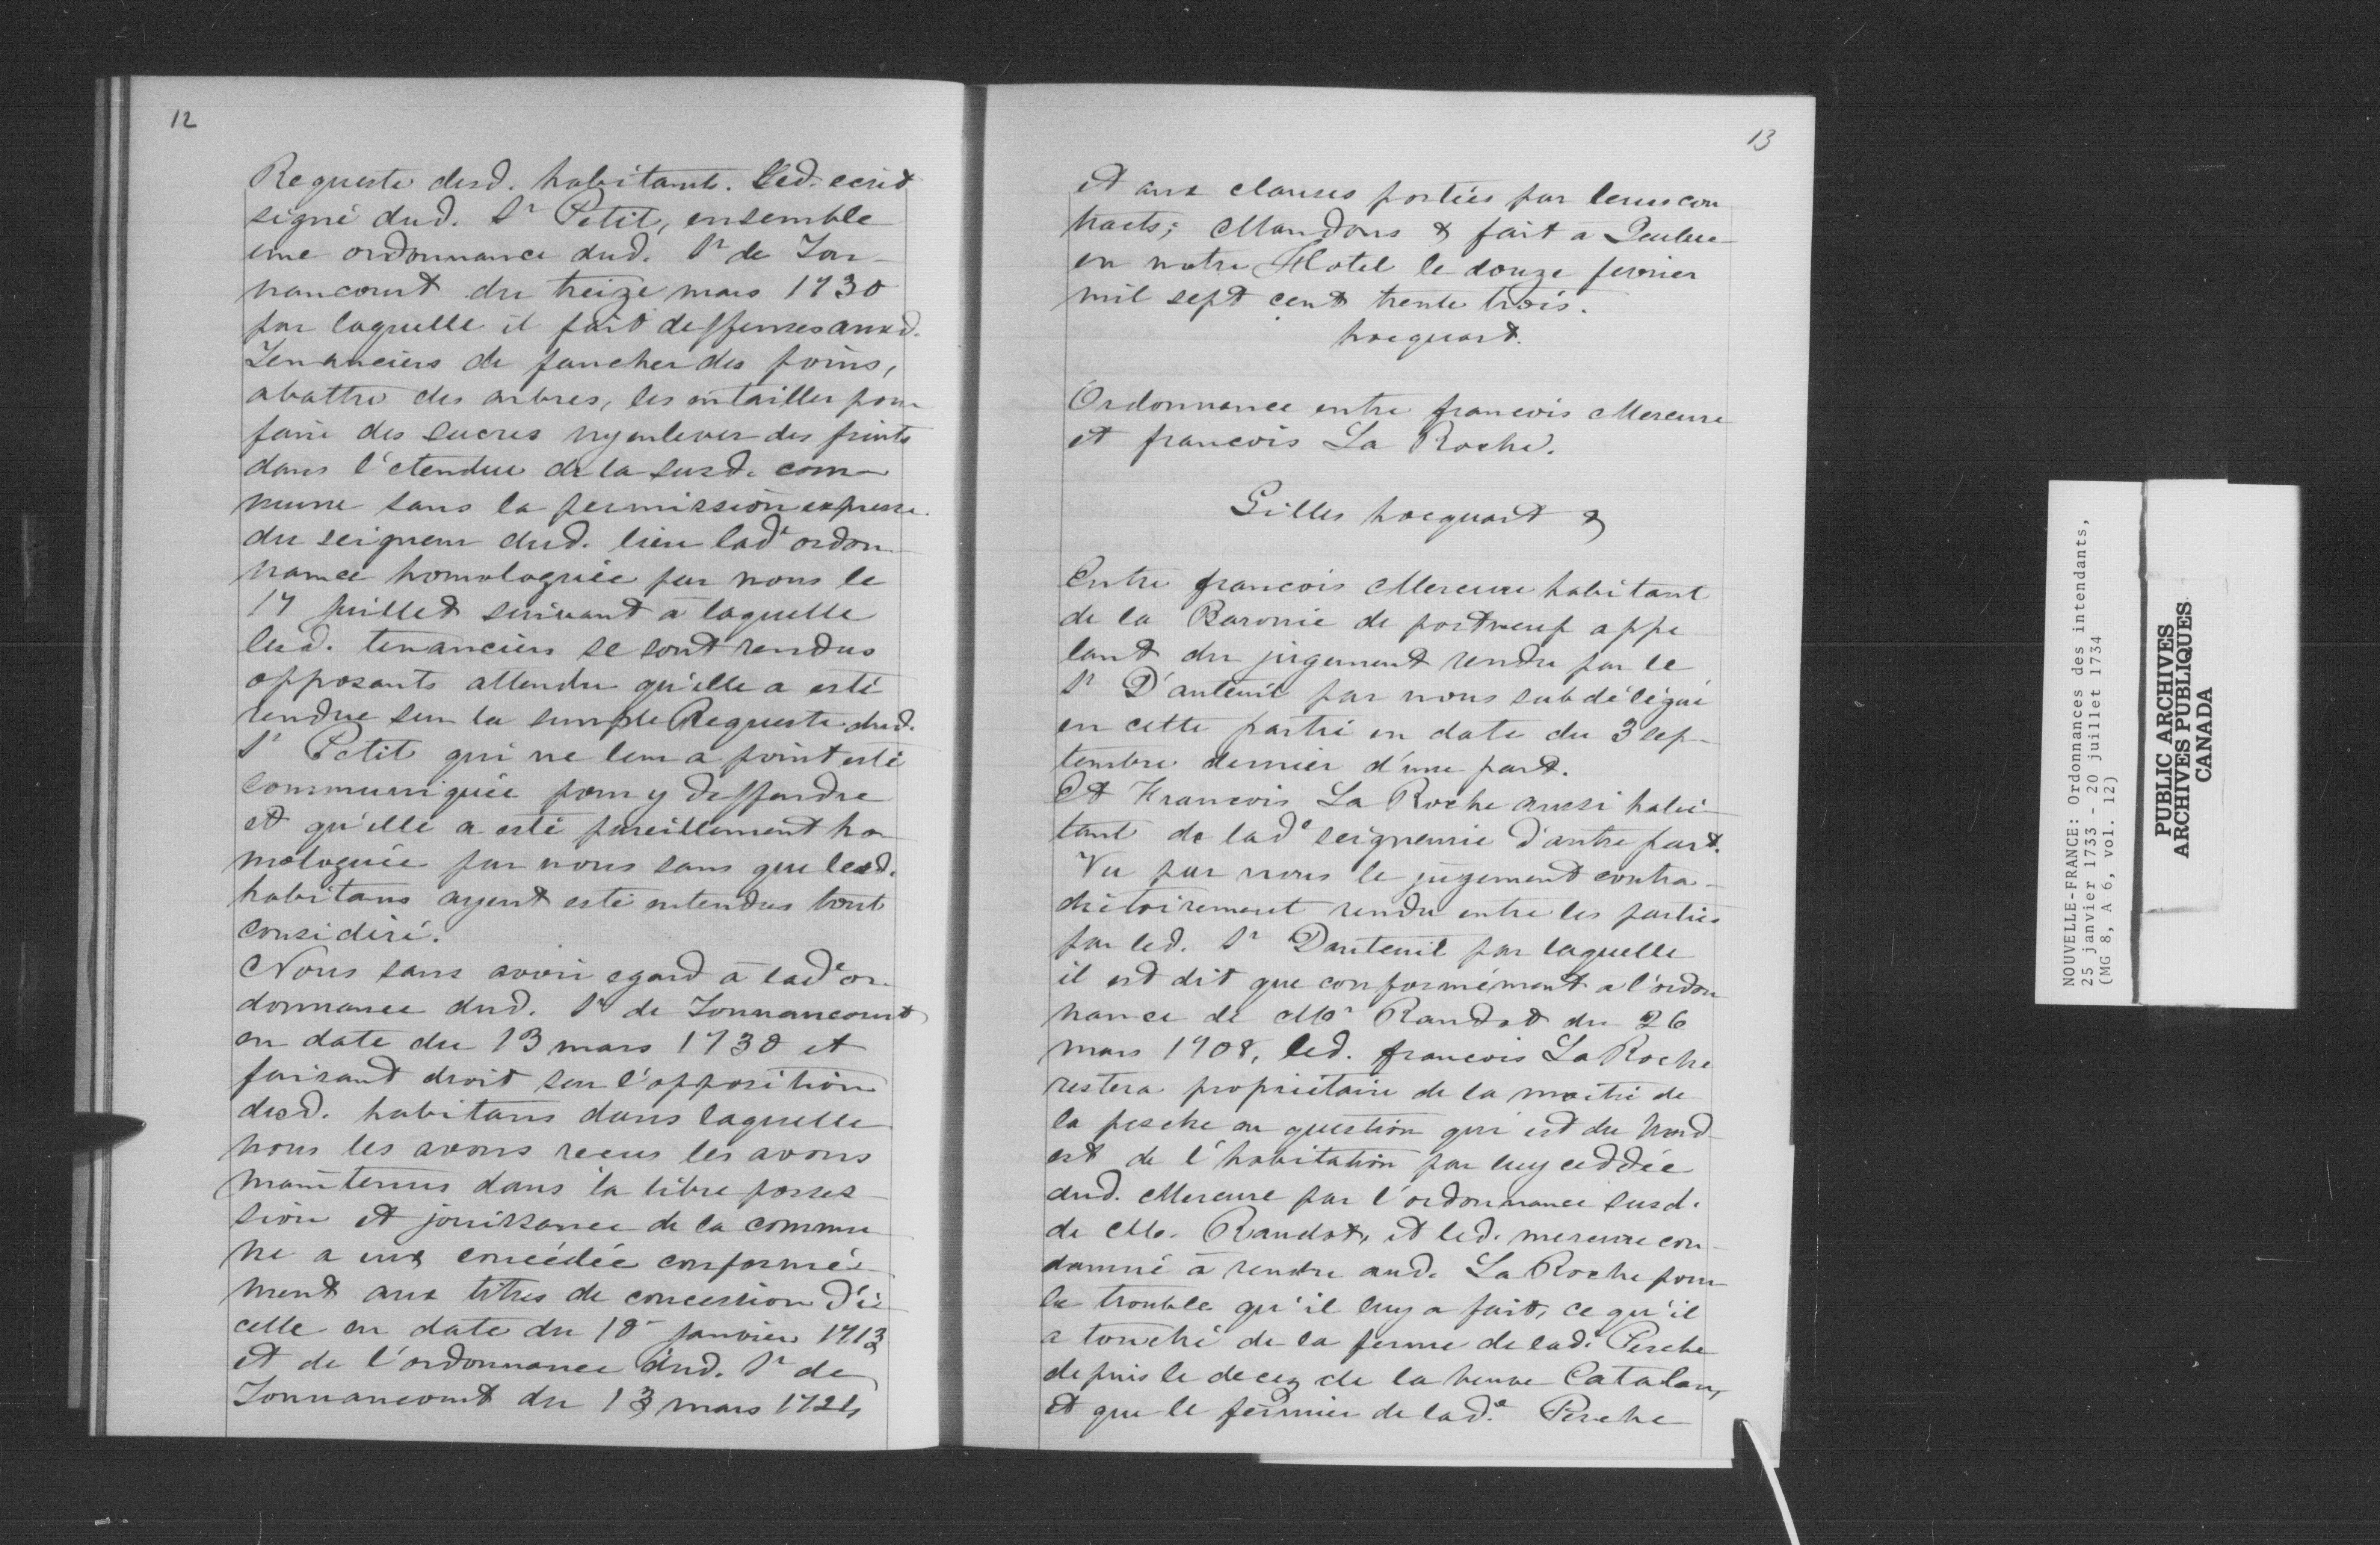 12
Requeste desd. habitants. Led. ecrit
signé dud. Sr Petit, ensemble
une ordonnance dud. Sr de Ton-
nancourt du treize mars 1730
par laquelle il fait deffenses auxd.
Tenanciers de faucher des foins,
abattre des arbres, les entailler pour
faire des sucres ny enlever des fruits
dans l'étendue de la susd. com-
mune sans la permission expresse
du seigneur dud. lieu lade ordon-
nance homologuée par nous le
17 juillet suivant à laquelle
lesd. tenanciers se sont rendus
opposants attendu qu'elle a esté
rendue sur la simple Requeste dud.
Sr Petit qui ne leur a point esté
communiquée pour y deffendre
et qu'elle a esté pareillement ho-
mologuée par nous sans que lesd.
habitans ayent esté entendus tout
consideré.
Nous sans avoir egard à lade or-
donnance dud. Sr de Tonnancourt
en date du 13 mars 1730 et
faisant droit sur l'opposition
desd. habitans dans laquelle
nous les avons recus les avons
maintenus dans la libre posses-
sion et jouissance de la commu-
ne a eux concédée conformé-
ment aux titres de concession d'i-
celle en date du 18 janvier 1713
et de l'ordonnance dud. Sr de
Tonnancourt du 13 mars 1724
13
et aux clauses portées par leurs con
tracts; Mandons & fait a Quebec
en notre Hotel le douze fevrier
mil sept cent trente trois.
hocquart.
Ordonnance entre francois Mercure
et francois La Roche.
Gilles hocquart &
Entre francois Mercure habitant
de la Baronie de portneuf appe-
lant du jugement rendu par le
Sr D'auteuil par nous subdélégué
en cette partie en date du 3 sep-
tembre dernier d'une part.
Et Francois La Roche aussi habi-
tant de lade seigneurie d'autre part.
Vu par nous le jugement contra-
dictoirement rendu entre les parties
par led. Sr Dauteuil par laquelle
il est dit que conformément a l'ordon
nance de Mr Raudot du 26
mars 1708, led. francois La Roche
restera propriétaire de la moitié de
la pesche en question qui est du Nord-
est de l'habitation par luy ceddée
aud. Mercure par l'ordonnance susd.
de M. Raudot, et led. mercure con-
damné à rendre aud. La Roche pour
le trouble qu'il luy a fait, ce qu'il
a touché de la ferme de lade Pesche
depuis le decez de la veuve Catalan,
et que le fermier de lade Pesche
NOUVELLE-FRANCE: Ordonnances des intendants,
25 janvier 1733 - 20 juillet 1734
(MG 8, A 6, vol. 12)
PUBLIC ARCHIVES
ARCHIVES PUBLIQUES
CANADA